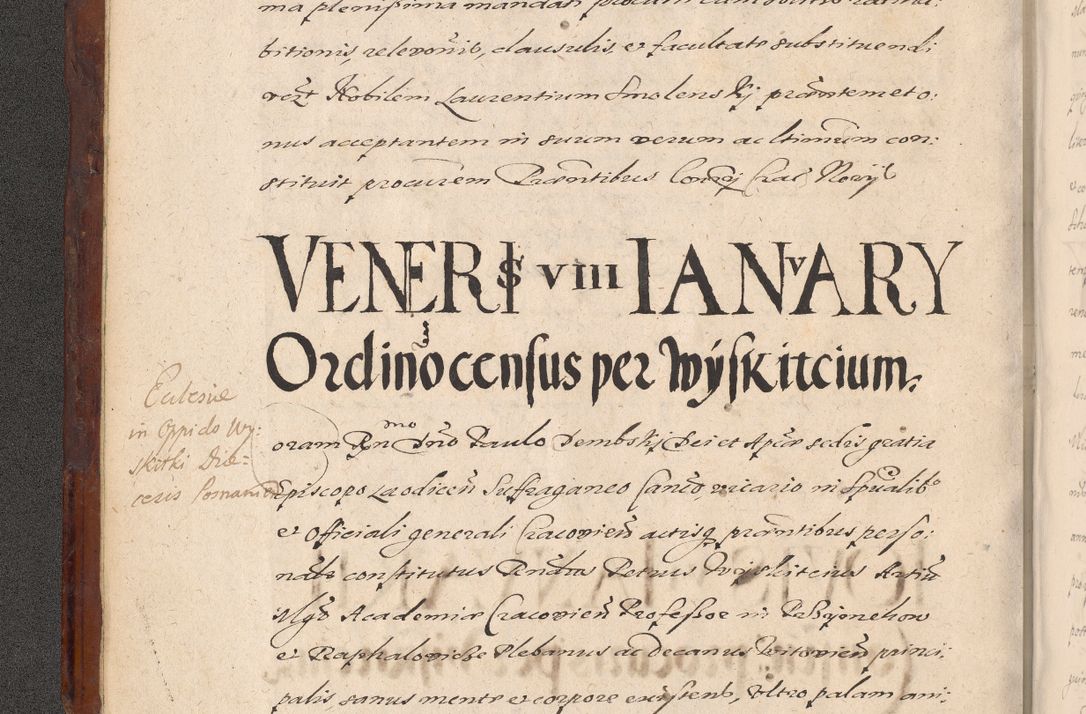 ma plenissima mandati procurm cum solito ratiha:
bitionis, relevonis, clausulis, et facultate substituendi
Nobilem Laurentium Smolensky prãntem et o:
nus acceptantem in suum verum ac ltimum con:
stituit procurem Prãntibus
VENERIS VIII IANVARY
Ordinõ census per Wÿskitcium.
Eclesiæ
in Oppido Wy:
skitki Diæ:
cesis Posnanien
oram Rndmo Dno Paulo Dembskÿ Dei et Aplicæ sedis gratia
Episcopo Laodiceñ Suffraganeo vicario in Spũalibo
et Officiali generali Cracovieñ actisq prãntibus perso:
nalr constitutus Venrabilis Petrus Wyskitcius Artiũ
Mgr Academiæ Cracovieñ Professor in
et Raphalovicze Plebanus ac decanus Witovieñ princi:
palis, sanus mente et corpore existens, Vltro palam ani: